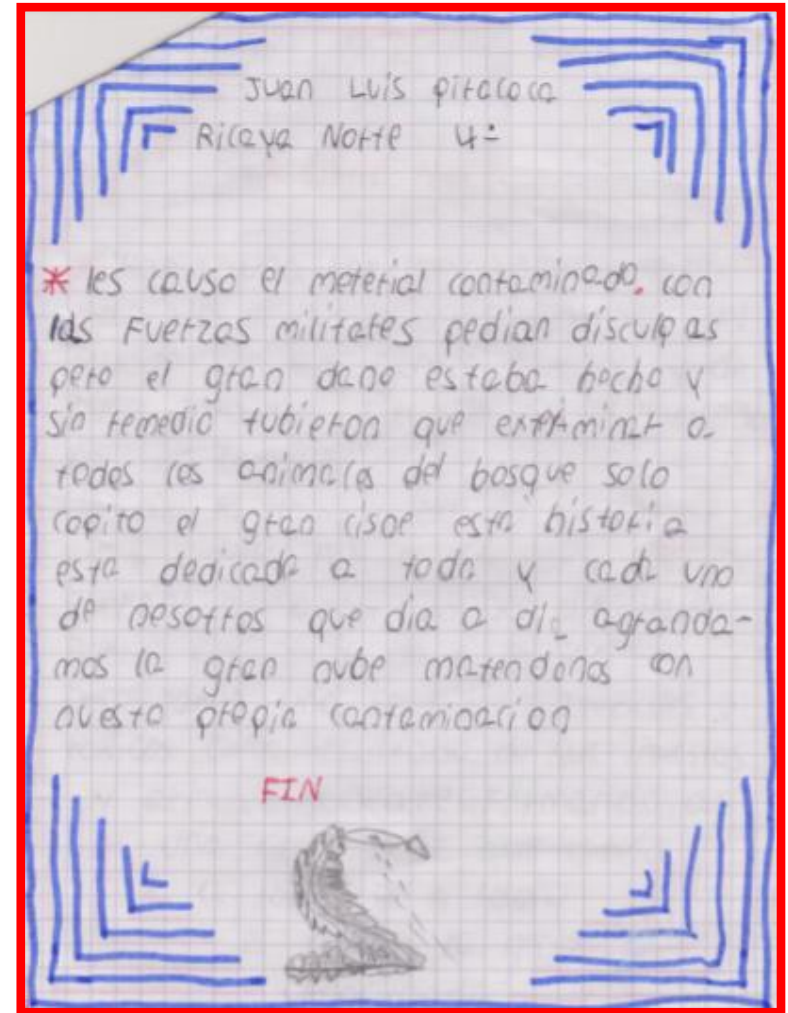 Juan Luis Pitaloca
Ricaya Norte 4º
* les causo el meterial contaminado. con
las Fuerzas militares pedian disculpas
pero el gran dano estaba hecho y
sin remedio tubieron que exterminar a
todos los animales del bosque solo
copito el gran cisne esta historia
esta dedicada a todo y cada uno
de nosotros que dia a dia agranda-
mos la gran nube matendonos con
nuesta propia contaminacion
FIN